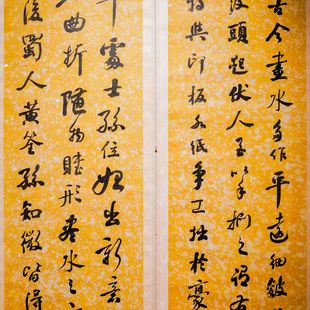 古今畫水多作平遠細皺
波頭起伏人至以手捫之謂有
特與印板水紙爭工拙於豪
處士孫位始出新意
曲折隨物賦形盡水之
後蜀人黃筌孫知微皆得